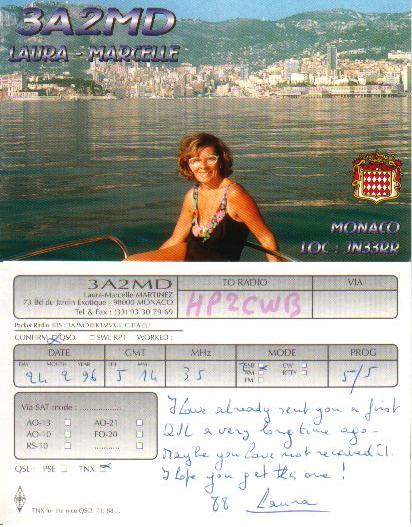 3A2MD
LAURA - MARCELLE
MONACO
LOC : JN33RR
3A2MD
Laura-Marcelle MARTINEZ
73 Bd du Jardin Exotique - 98000 MONACO
Tel & Fax : (33) 93 30 79 69
TO RADIO
HP2CWB
VIA
CONFIRM QSO SWL RPT WORKED :
DATE GMT MHz MODE PROG
DAY MONTH YEAR
24 2 96 5 14 3 5 5/5
SSB CW
AM RTTY
FM
Via SAT mode : ............
AO-13 AO-21
AO-10 FO-20
RS-10
QSL : PSE TNX
I have already sent you a first
QSL a very long time ago.
Maybe you have not received it.
I hope you get this one !
88 Laura
TNX for the nice QSO. 73, 88 ...